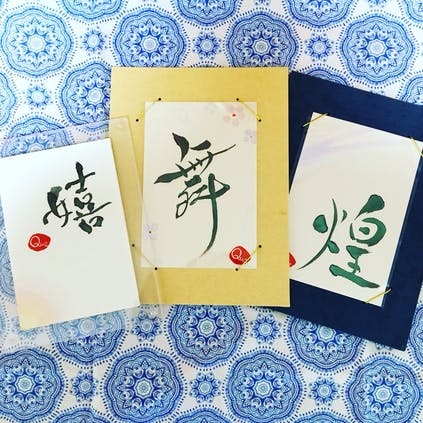 嬉
舞
煌